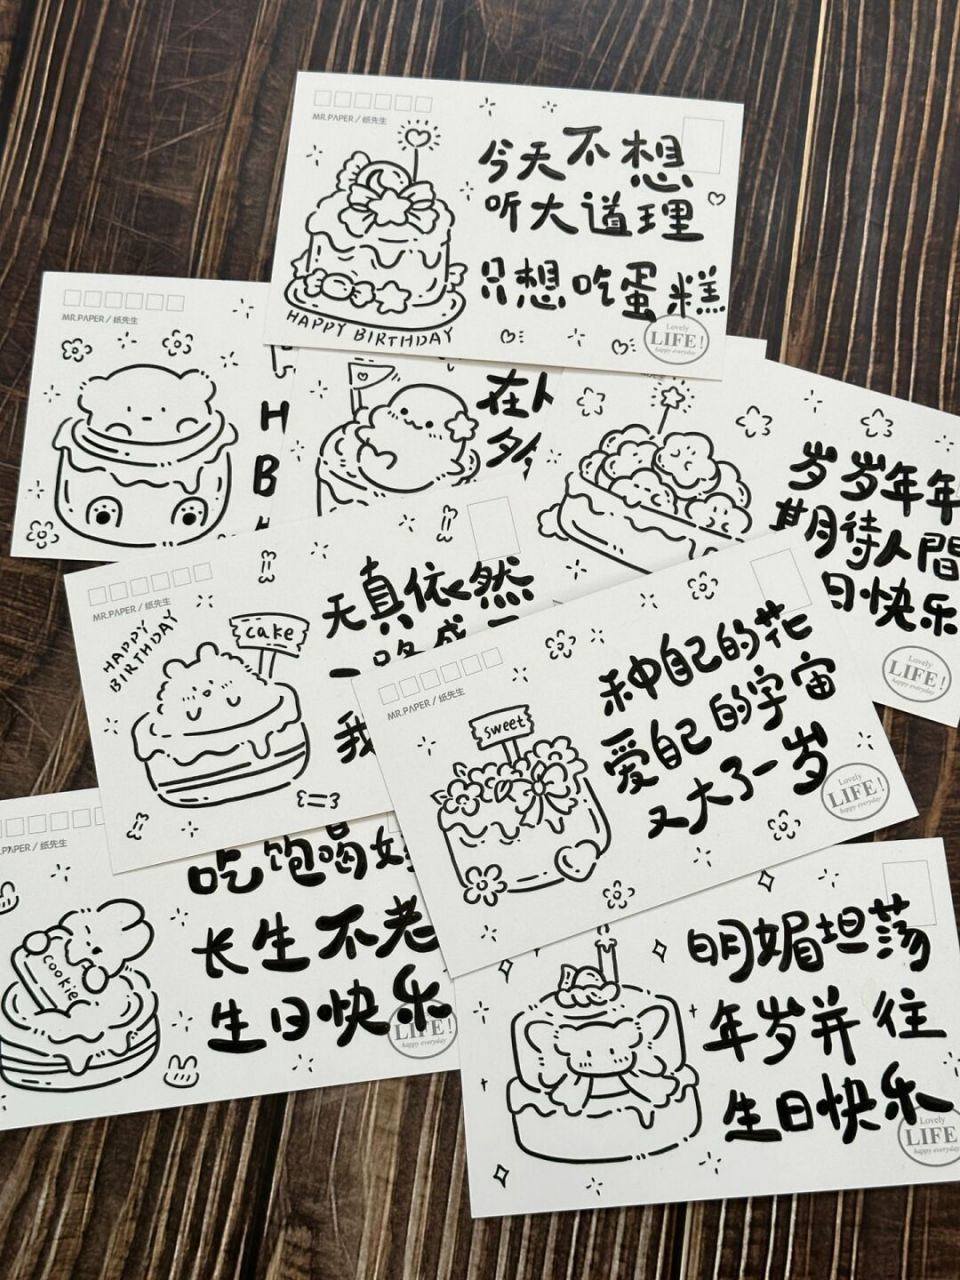 MR.PAPER / 纸先生
今天不想
听大道理
只想吃蛋糕
HAPPY BIRTHDAY
Lovely
LIFE!
happy everyday
MR.PAPER / 纸先生
H
B
在
岁岁年年
期待人間
日快乐
Lovely
LIFE!
happy everyday
MR.PAPER / 纸先生
HAPPY
BIRTHDAY
cake
天真依然
一路
我
MR.PAPER / 纸先生
sweet
种自己的花
爱自己的宇宙
又大了一岁
Lovely
LIFE!
happy everyday
MR.PAPER / 纸先生
cookie
吃饱喝好
长生不老
生日快乐
LIFE!
happy everyday
明媚坦荡
年岁并往
生日快乐
Lovely
LIFE
happy everyday